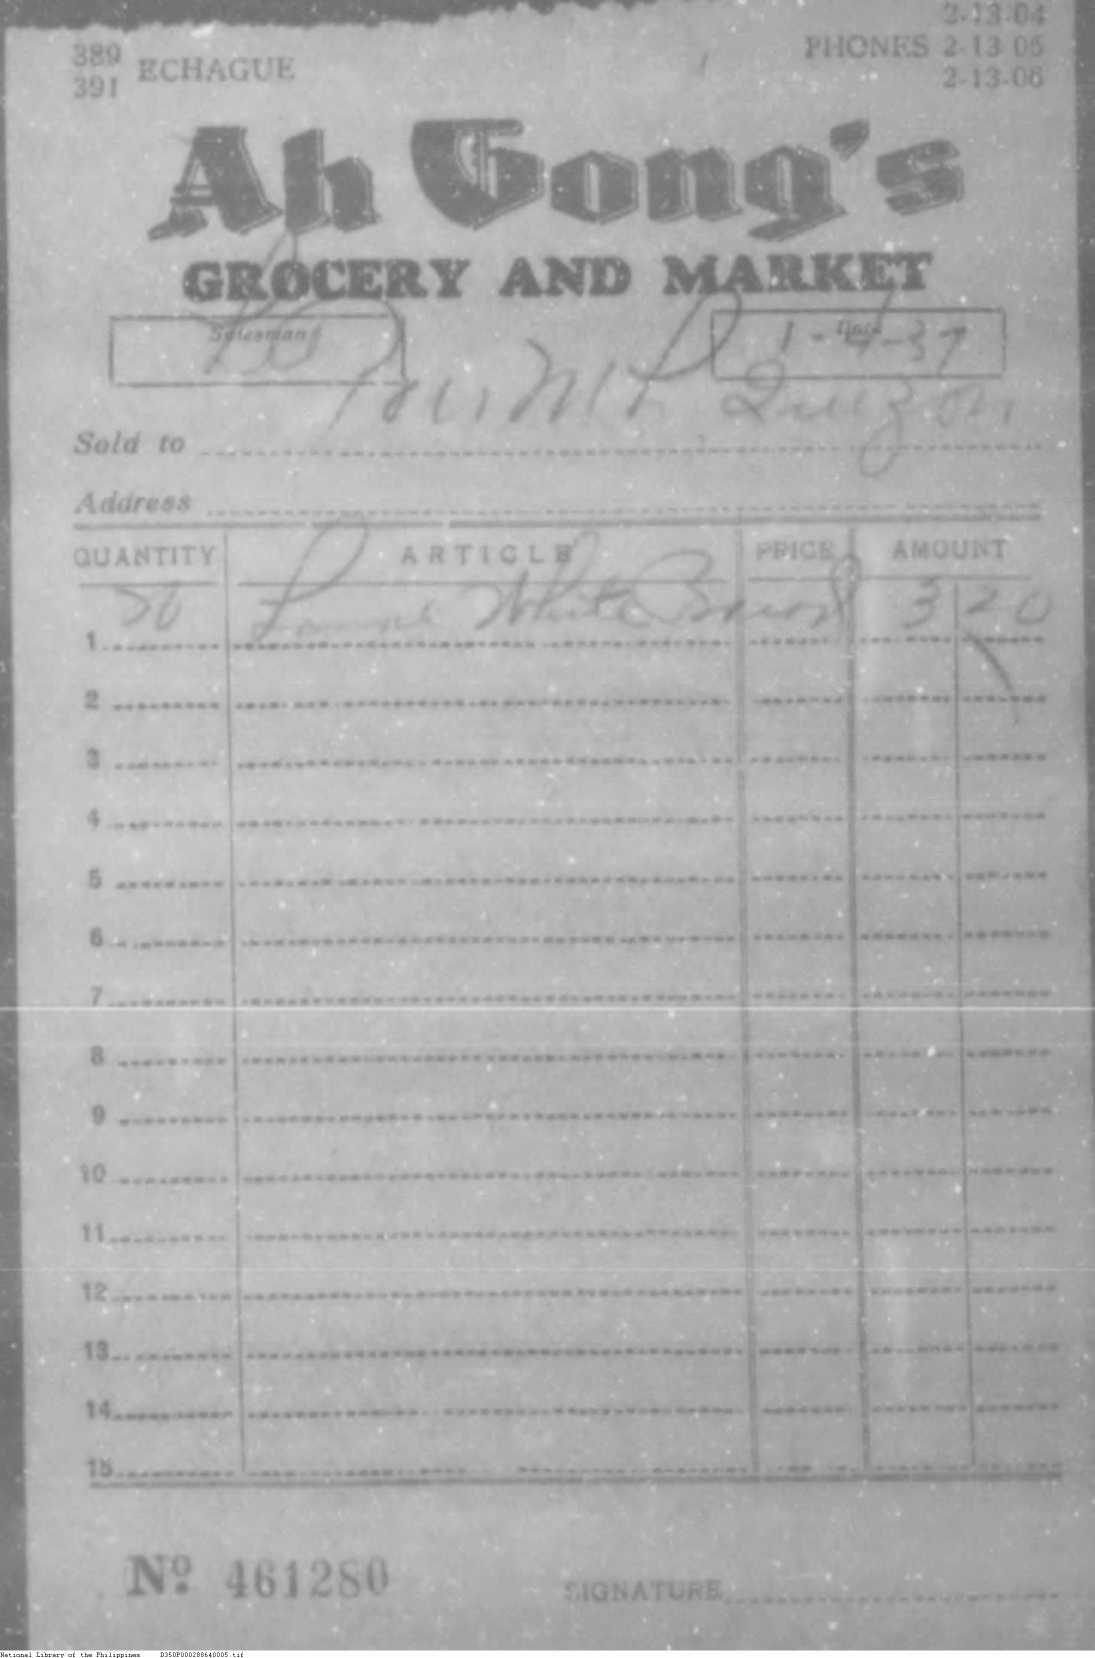 2-13-04
389 ECHAGUE PHONES 2-13 05
391 2-13-06
Ah Gong's
GROCERY AND MARKET
Salesman Date
1-4-37
Sold to Mr. M L Quezon
Address
QUANTITY ARTICLE PRICE AMOUNT
1 White Bread 3 20
2
3
4
5
6
7
8
9
10
11
12
13
14
15
Nº 461280
SIGNATURE
National Library of the Philippines D350P000288640005.tif